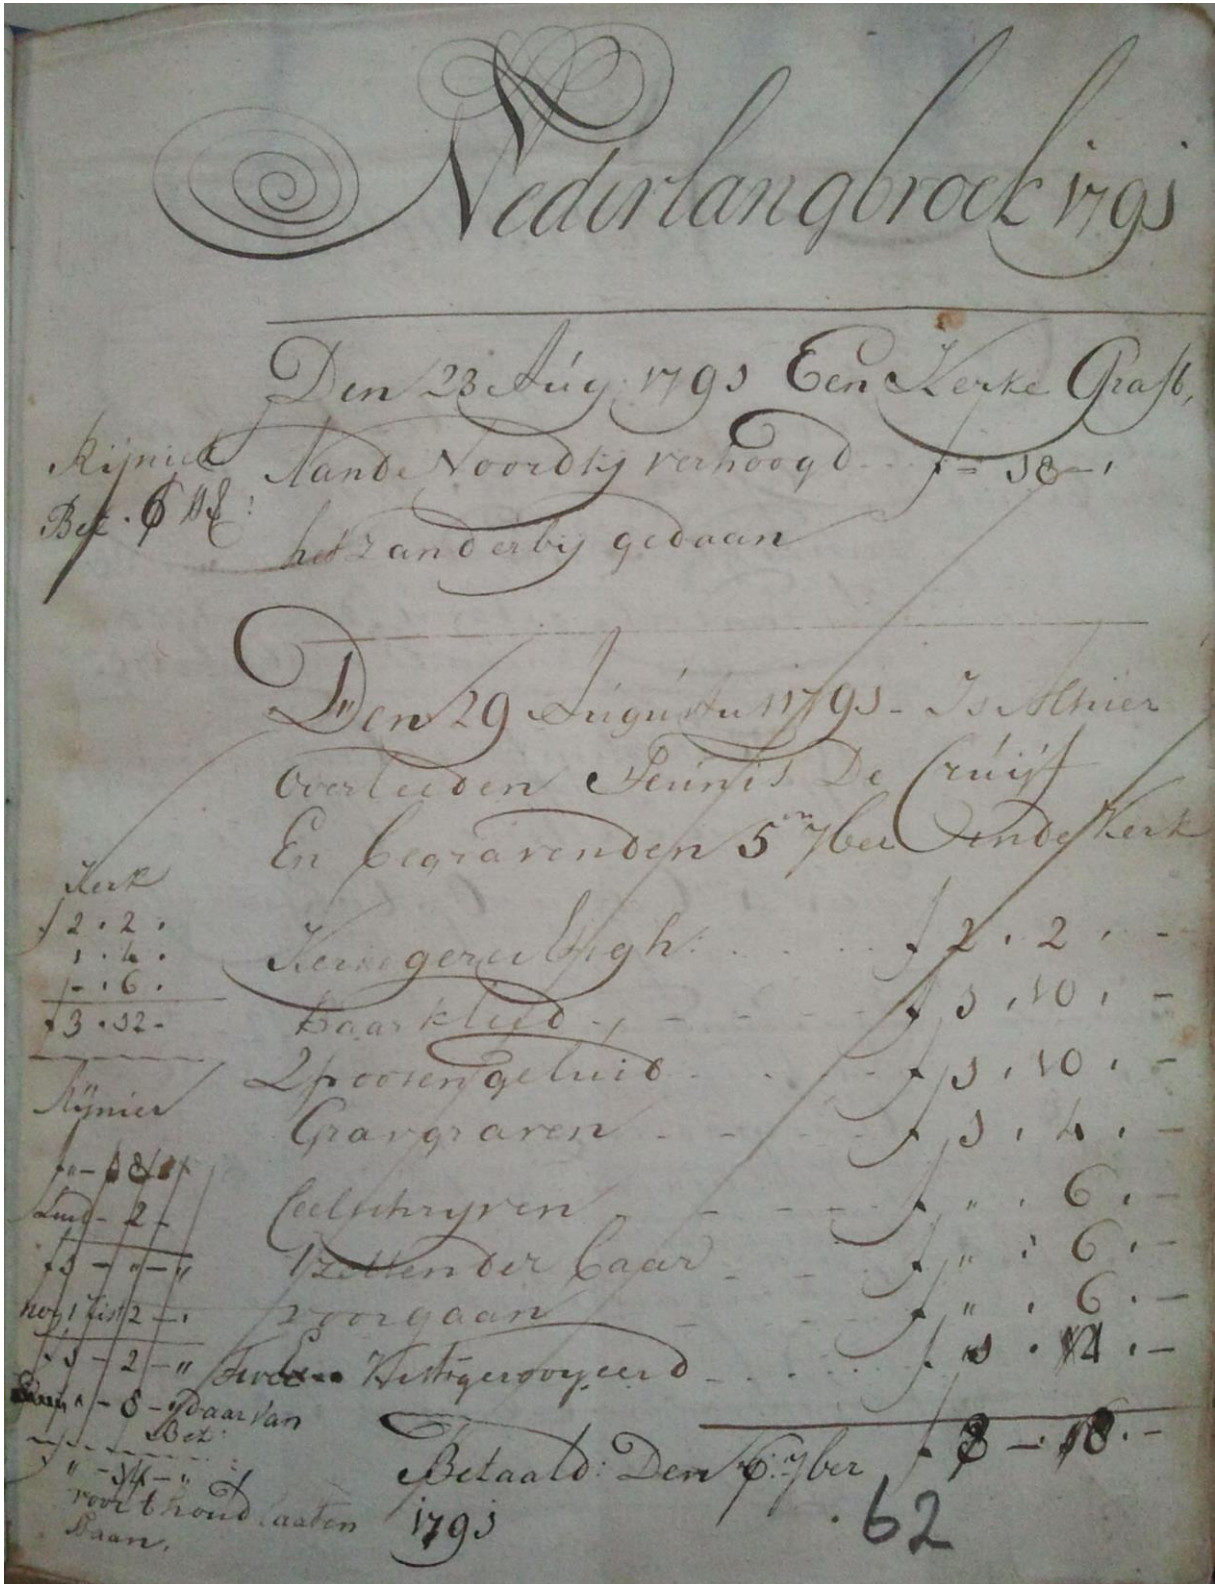 Nederlangbroek 1791
Den 23 Aúg: 1791 Een Kerke Graft,
Aande Noordzij verhoogd f - 18 -
het zand erbij gedaan
Rijnier
Bet.
Den 29 Aúgústús 1791 - Is Alhier
Overleeden Teúnis De Crúijf
En begraven den 5en 7ber Inde Kerk
Kerk
f 2 . 2 .
1 . 4 .
f - . 6 .
f 3 . 12 -
Kerkegerechtigh: f 2 . 2 . -
Baarkleed f 1 . 10 . -
2 poosen geluid f 1 . 10 . -
Grav graven f 1 . 4 . -
Ceelschryven f " . 6 . -
't zetten der baar f " . 6 . -
voorgaan f " . 6 . -
Twee Kistgerooyeerd f 1 . 14 . -
f 8 - 18 . -
Rijnier
Luid - 2 -
f 1 - " - "
nog 1 kist 2 - .
f 1 - 2 - "
- 8 - daar van
Bet:
f " - 14 - "
voor t houd laaten
Staan.
Betaald: Den 6: 7ber
1791
. 62